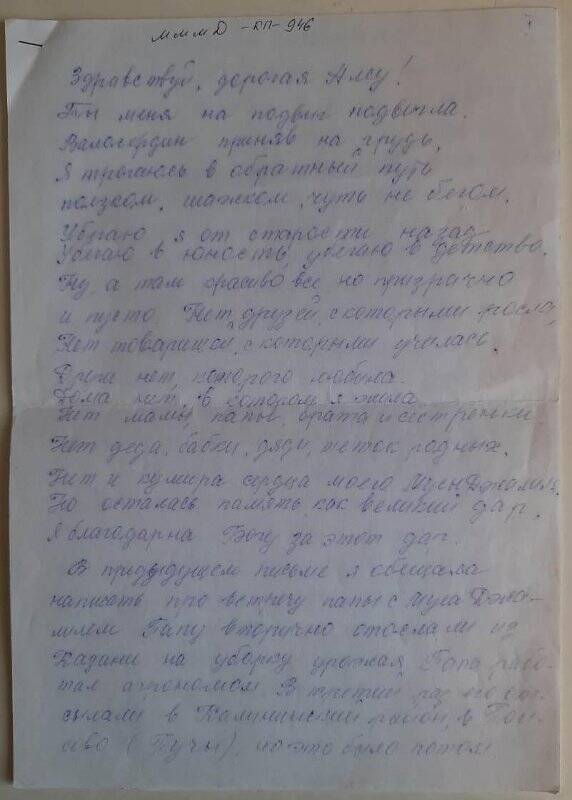 МММД -КП- 946
Здравствуй, дорогая Алсу!
Ты меня на подвиг подвигла.
Валосердин приняв на грудь,
Я трогаюсь в обратный путь
ползком, шажком, чуть не бегом.
Убегаю я от старости назад
Убегаю в юность, убегаю в детство.
Ну, а там красиво все, но призрачно
и пусто. Нет друзей, с которыми росла,
Нет товарищей, с которыми училась.
нет, которого любила.
Дома нет, в котором я жила.
Нет мамы, папы, брата и сестренки
Нет деда, бабки, дяди, теток родных.
Нет и кумира сердца моего Мусы Джалиля.
Но осталась память, как великий дар.
Я благодарна Богу за этот дар.
В предыдущем письме я обещала
написать про встречу папы с Муса Джа-
лилем Папу вторично отослали из
Казани на уборку урожая, Папа рабо-
тал агрономом. В третий раз его от-
сылали в Калининский район, в
(Тучы), но это было потом